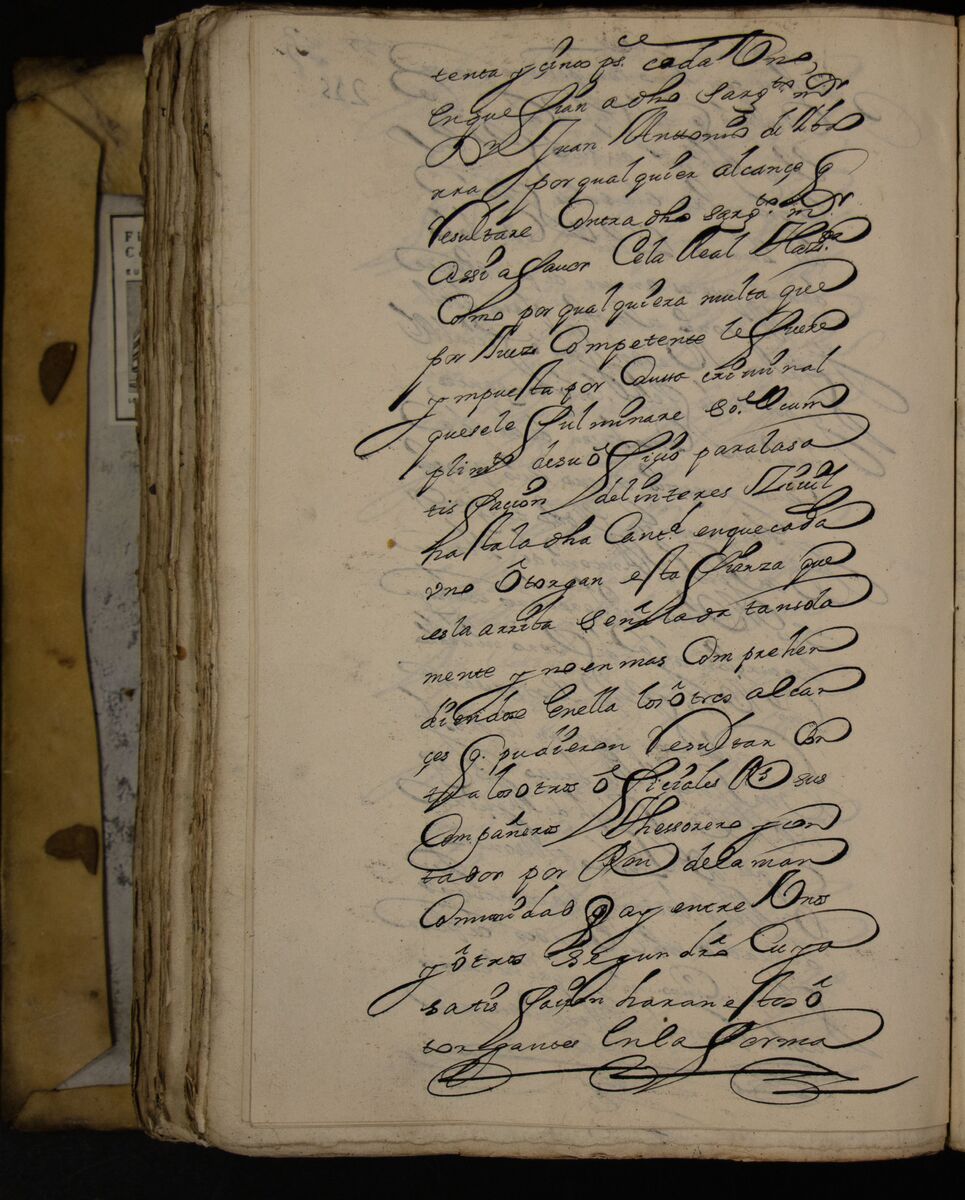 tenta y çinco ps. cada Uno,
en que fian a dho sargto. mor.
Dn Juan Antonio de Uba
rra por qualquier alcançe q
Resultare Contra dho sargto. mor.
assi a favor de la Real Hazda
Como por qualquiera multa que
por Juez Competente le fuere
ympuesta por Causa criminal
que se le fulminare Sre. el cum
plimto de su ôfiçio para la sa
tisfaçion del interes Zivil
hasta la dha Cantd en que cada
vno ôtorgan esta fianza que
es la arriba Señalada tan sola
mente y no en mas Comprehen
diendose en ella los ôtros alcan
çes q. pudieron Resultar Con
tra los otros ôfiçiales Rs sus
Compañeros Thessorero y con
tador por Ron de la man
Comunidad q ay entre Unos
y ôtros segun dro. Cuya
satisfaçion haran estos ô
torgantes En la forma